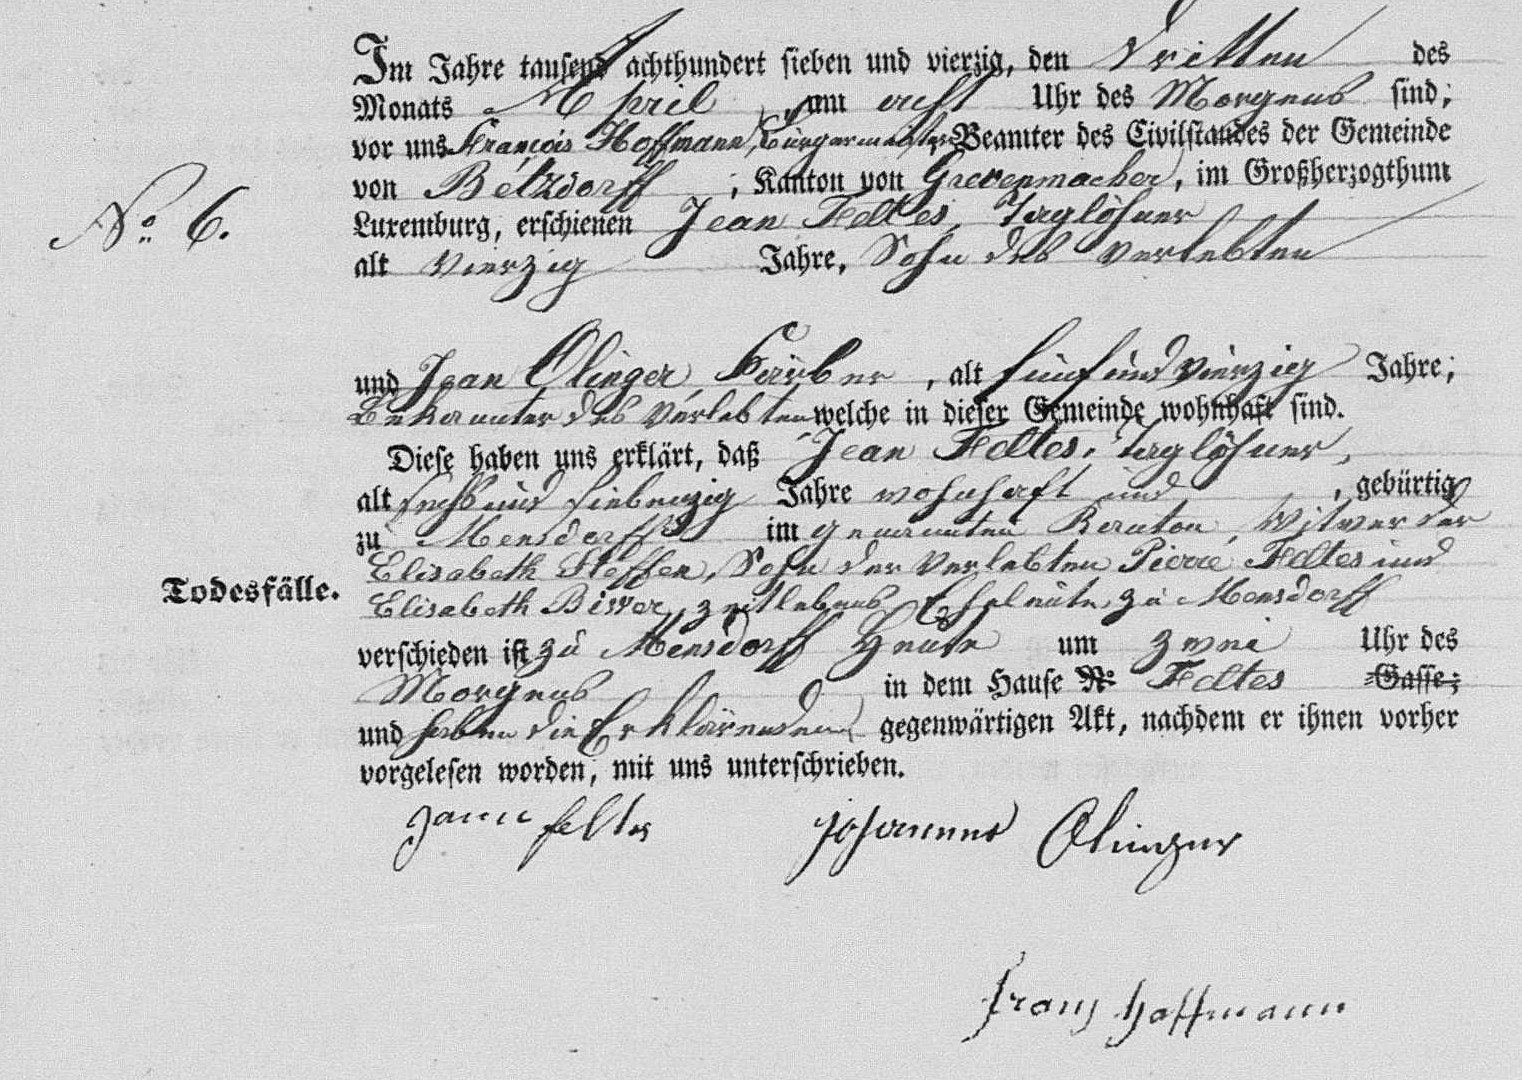 Im Jahre tausend achthundert sieben und vierzig, den dritten des
Monats April um acht Uhr des Morgens sind;
vor uns François Hoffmann, Bürgermeister, Beamter des Civilstandes der Gemeinde
von Betzdorff ; Kanton von Grevenmacher, im Großherzogthum
No 6.
Luxemburg, erschienen Jean Feltes, Taglöhner
alt vierzig Jahre, Sohn des verlebten
und Jean Olinger, Färber, alt fünf und vierzig Jahre;
Bekannter des Verlebten welche in dieser Gemeinde wohnhaft sind.
Diese haben uns erklärt, daß Jean Feltes, Taglöhner,
alt sechs und siebenzig Jahre wohnhaft und , gebürtig
zu Mensdorff im genannten Kanton, Witwer der
Elisabeth Steffen, Sohn der verlebten Pierre Feltes und
Todesfälle.
Elisabeth Biwer, zeitlebens Eheleute zu Mensdorff
verschieden ist zu Mensdorff Heute um zwei Uhr des
Morgens in dem Hause N: Feltes Gasse;
und haben die Erklärenden gegenwärtigen Akt, nachdem er ihnen vorher
vorgelesen worden, mit uns unterschrieben.
Feltes Johannes Olinger
Franz Hoffmann